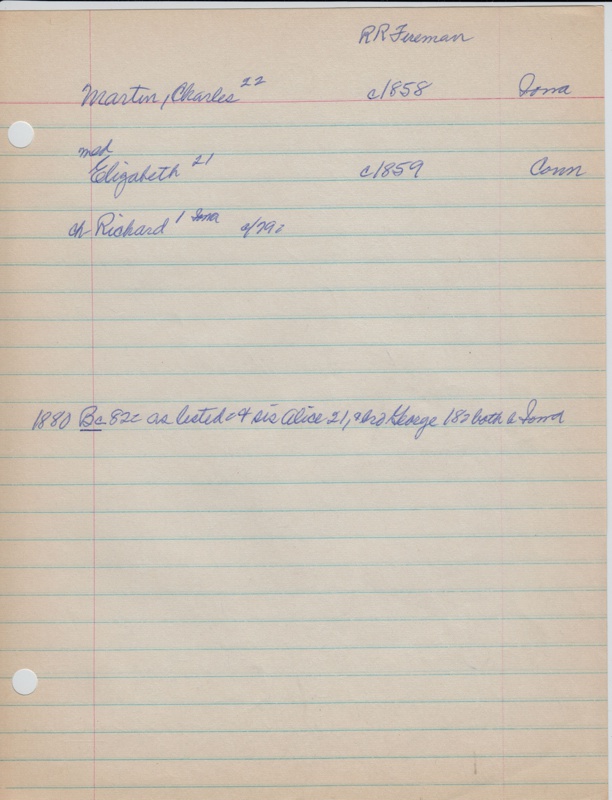 RR Fireman
Martin, Charles 22 c/1858 Iowa
msd
Elizabeth 21 c/1859 Conn
ch Richard 1 Iowa c/79:
1880 Bc 82= as listed=+ sis Alice 21, + bro George 18= both b Iowa